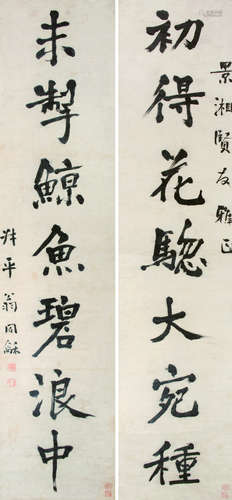 景湘賢友雅正
初得花驄大宛種
未掣鯨魚碧浪中
叔平翁同龢